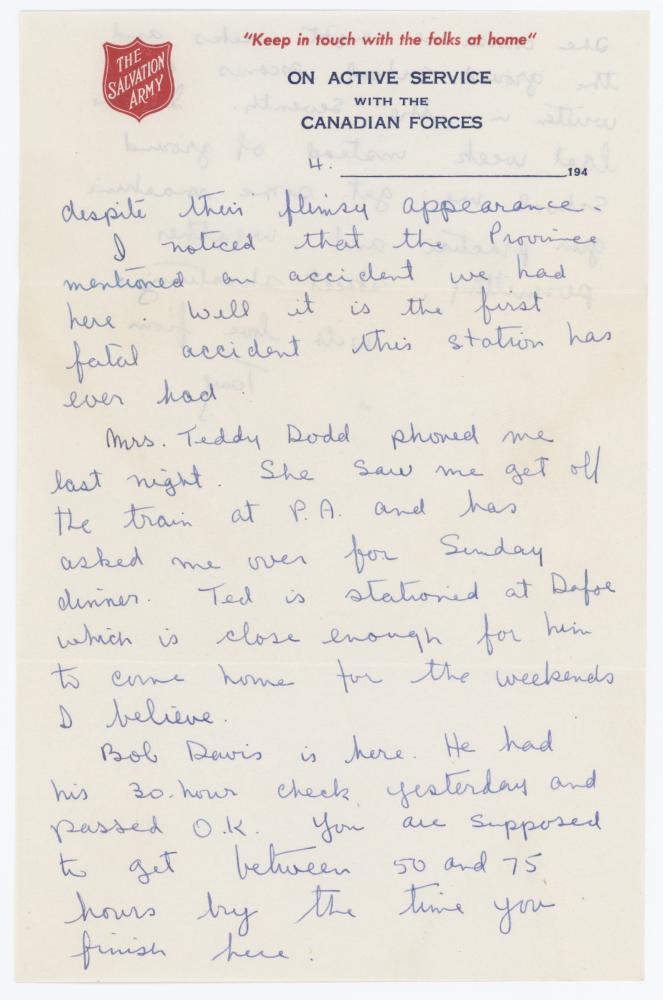 THE
SALVATION
ARMY
"Keep in touch with the folks at home"
ON ACTIVE SERVICE
WITH THE
CANADIAN FORCES
4. 194
despite their flimsy appearance.
I noticed that the Province
mentioned an accident we had
here. Well it is the first
fatal accident this station has
ever had.
Mrs. Teddy Dodd phoned me
last night. She saw me get off
the train at P.A. and has
asked me over for Sunday
dinner. Ted is stationed at Dafoe
which is close enough for him
to come home for the weekends
I believe.
Bob Davis is here. He had
his 30. hour check yesterday and
passed O.K. You are supposed
to get between 50 and 75
hours by the time you
finish here.